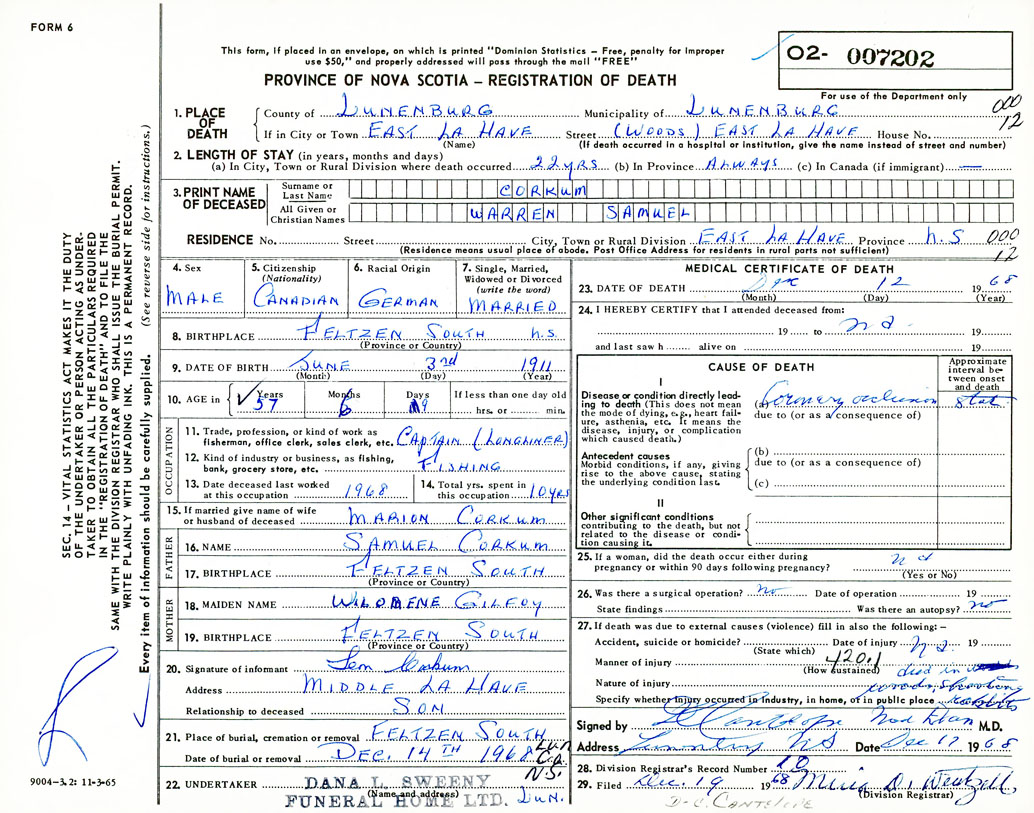 FORM 6
This form, if placed in an envelope, on which is printed "Dominion Statistics – Free, penalty for improper
use $50," and properly addressed will pass through the mail "FREE"
PROVINCE OF NOVA SCOTIA – REGISTRATION OF DEATH
O2- 007202
For use of the Department only
000
12
1. PLACE OF DEATH
County of LUNENBURG Municipality of LUNENBURG
If in City or Town EAST LA HAVE Street (WOODS) EAST LA HAVE House No.
(Name) (If death occurred in a hospital or institution, give the name instead of street and number)
2. LENGTH OF STAY (in years, months and days)
(a) In City, Town or Rural Division where death occurred 22 YRS (b) In Province ALWAYS (c) In Canada (if immigrant) —
3. PRINT NAME OF DECEASED
Surname or Last Name CORKUM
All Given or Christian Names WARREN SAMUEL
RESIDENCE No. Street City, Town or Rural Division EAST LA HAVE Province N.S 000
(Residence means usual place of abode. Post Office Address for residents in rural parts not sufficient) 12
4. Sex
MALE
5. Citizenship
(Nationality)
CANADIAN
6. Racial Origin
GERMAN
7. Single, Married,
Widowed or Divorced
(write the word)
MARRIED
8. BIRTHPLACE FELTZEN SOUTH N.S.
(Province or Country)
9. DATE OF BIRTH JUNE 3rd 1911
(Month) (Day) (Year)
10. AGE in Years Months Days If less than one day old
57 6 9 hrs. or min.
OCCUPATION
11. Trade, profession, or kind of work as
fisherman, office clerk, sales clerk, etc. CAPTAIN (LONGLINER)
12. Kind of industry or business, as fishing,
bank, grocery store, etc. FISHING
13. Date deceased last worked
at this occupation 1968
14. Total yrs. spent in
this occupation 10 YRS
15. If married give name of wife
or husband of deceased MARION CORKUM
FATHER
16. NAME SAMUEL CORKUM
17. BIRTHPLACE FELTZEN SOUTH
(Province or Country)
MOTHER
18. MAIDEN NAME GILFOY
19. BIRTHPLACE FELTZEN SOUTH
(Province or Country)
20. Signature of informant Corkum
Address MIDDLE LA HAVE
Relationship to deceased SON
21. Place of burial, cremation or removal FELTZEN SOUTH
Date of burial or removal DEC. 14TH 1968 Lun. Co. N.S.
22. UNDERTAKER DANA L. SWEENY
(Name and address)
FUNERAL HOME LTD. LUN.
MEDICAL CERTIFICATE OF DEATH
23. DATE OF DEATH Dec 12 1968
(Month) (Day) (Year)
24. I HEREBY CERTIFY that I attended deceased from:
19 to 19
and last saw h alive on 19
CAUSE OF DEATH
Approximate
interval be-
tween onset
and death
I
Disease or condition directly lead-
ing to death (This does not mean
the mode of dying, e.g., heart fail-
ure, asthenia, etc. It means the
disease, injury, or complication
which caused death.)
(a) Coronary occlusion stat
due to (or as a consequence of)
Antecedent causes
Morbid conditions, if any, giving
rise to the above cause, stating
the underlying condition last.
(b)
due to (or as a consequence of)
(c)
II
Other significant conditions
contributing to the death, but not
related to the disease or condi-
tion causing it.
25. If a woman, did the death occur either during
pregnancy or within 90 days following pregnancy?
(Yes or No)
26. Was there a surgical operation? no Date of operation 19
State findings Was there an autopsy? no
27. If death was due to external causes (violence) fill in also the following:–
Accident, suicide or homicide? Date of injury 19
(State which)
Manner of injury 420.1
(How sustained)
Nature of injury died in woods, shooting
Specify whether injury occurred in industry, in home, or in public place rabbits
Signed by M.D.
Address NS Date Dec 17 1968
28. Division Registrar's Record Number 10
29. Filed Dec. 19 1968
(Division Registrar)
D. C. CANTELOPE
SEC. 14 – VITAL STATISTICS ACT MAKES IT THE DUTY
OF THE UNDERTAKER OR PERSON ACTING AS UNDER-
TAKER TO OBTAIN ALL THE PARTICULARS REQUIRED
IN THE "REGISTRATION OF DEATH" AND TO FILE THE
SAME WITH THE DIVISION REGISTRAR WHO SHALL ISSUE THE BURIAL PERMIT.
WRITE PLAINLY WITH UNFADING INK. THIS IS A PERMANENT RECORD.
Every item of information should be carefully supplied. (See reverse side for instructions.)
9004-3.2: 11-3-65